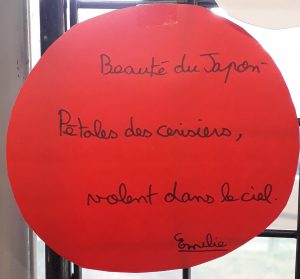 Beauté du Japon
Pétales des cerisiers,
volent dans le ciel.
Emelie